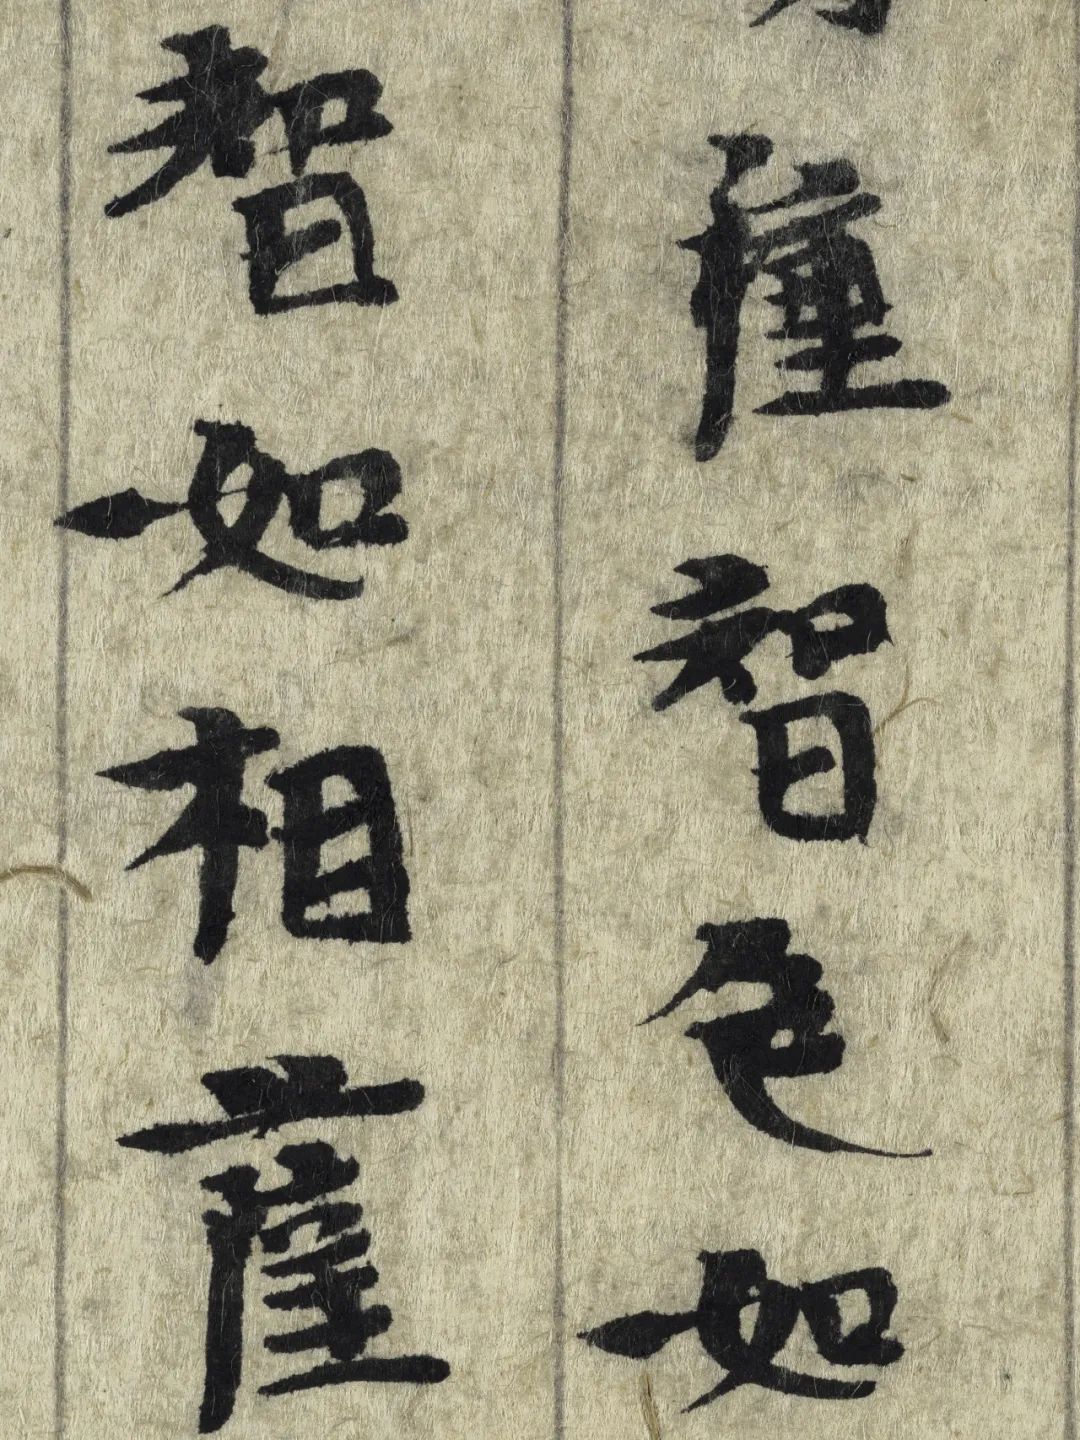 智色如
智如相薩